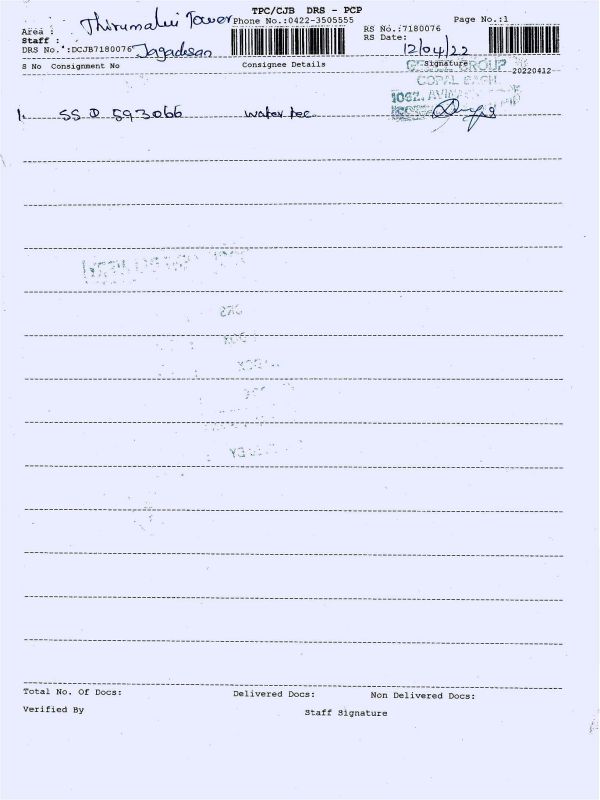 TPC/CJB DRS - PCP
Area : Thirumalai Tower Phone No.:0422-3505555 Page No.:1
RS No.:7180076
Staff : Jagadesan
RS Date: 12/04/22
DRS No. :DCJB7180076
S No Consignment No Consignee Details Signature 20220412
GROUP
1062, AVIN
1. 593066 water tec
Total No. Of Docs: Delivered Docs: Non Delivered Docs:
Verified By Staff Signature